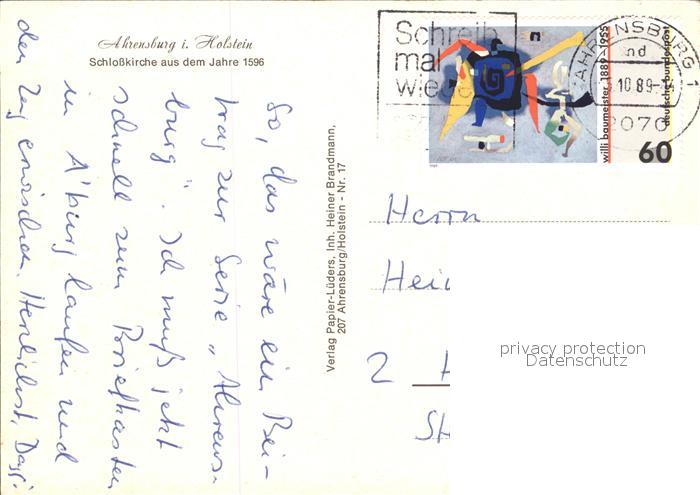 Ahrensburg i. Holstein
Schloßkirche aus dem Jahre 1596
So, das wäre ein Bei-
trag zur Serie „Ahrens-
burg". Ich muß jetzt
schnell zum Briefkasten
in A'burg laufen und
den Zug erwischen. Herzlichst,
Verlag Papier-Lüders, Inh. Heiner Brandmann,
207 Ahrensburg/Holstein - Nr. 17
Schreib
mal
wieder
AHRENSBURG 1
10.89
2070
willi baumeister 1889-1955
deutsche bundespost
60
Herrn
Hei
2
privacy protection
Datenschutz
St